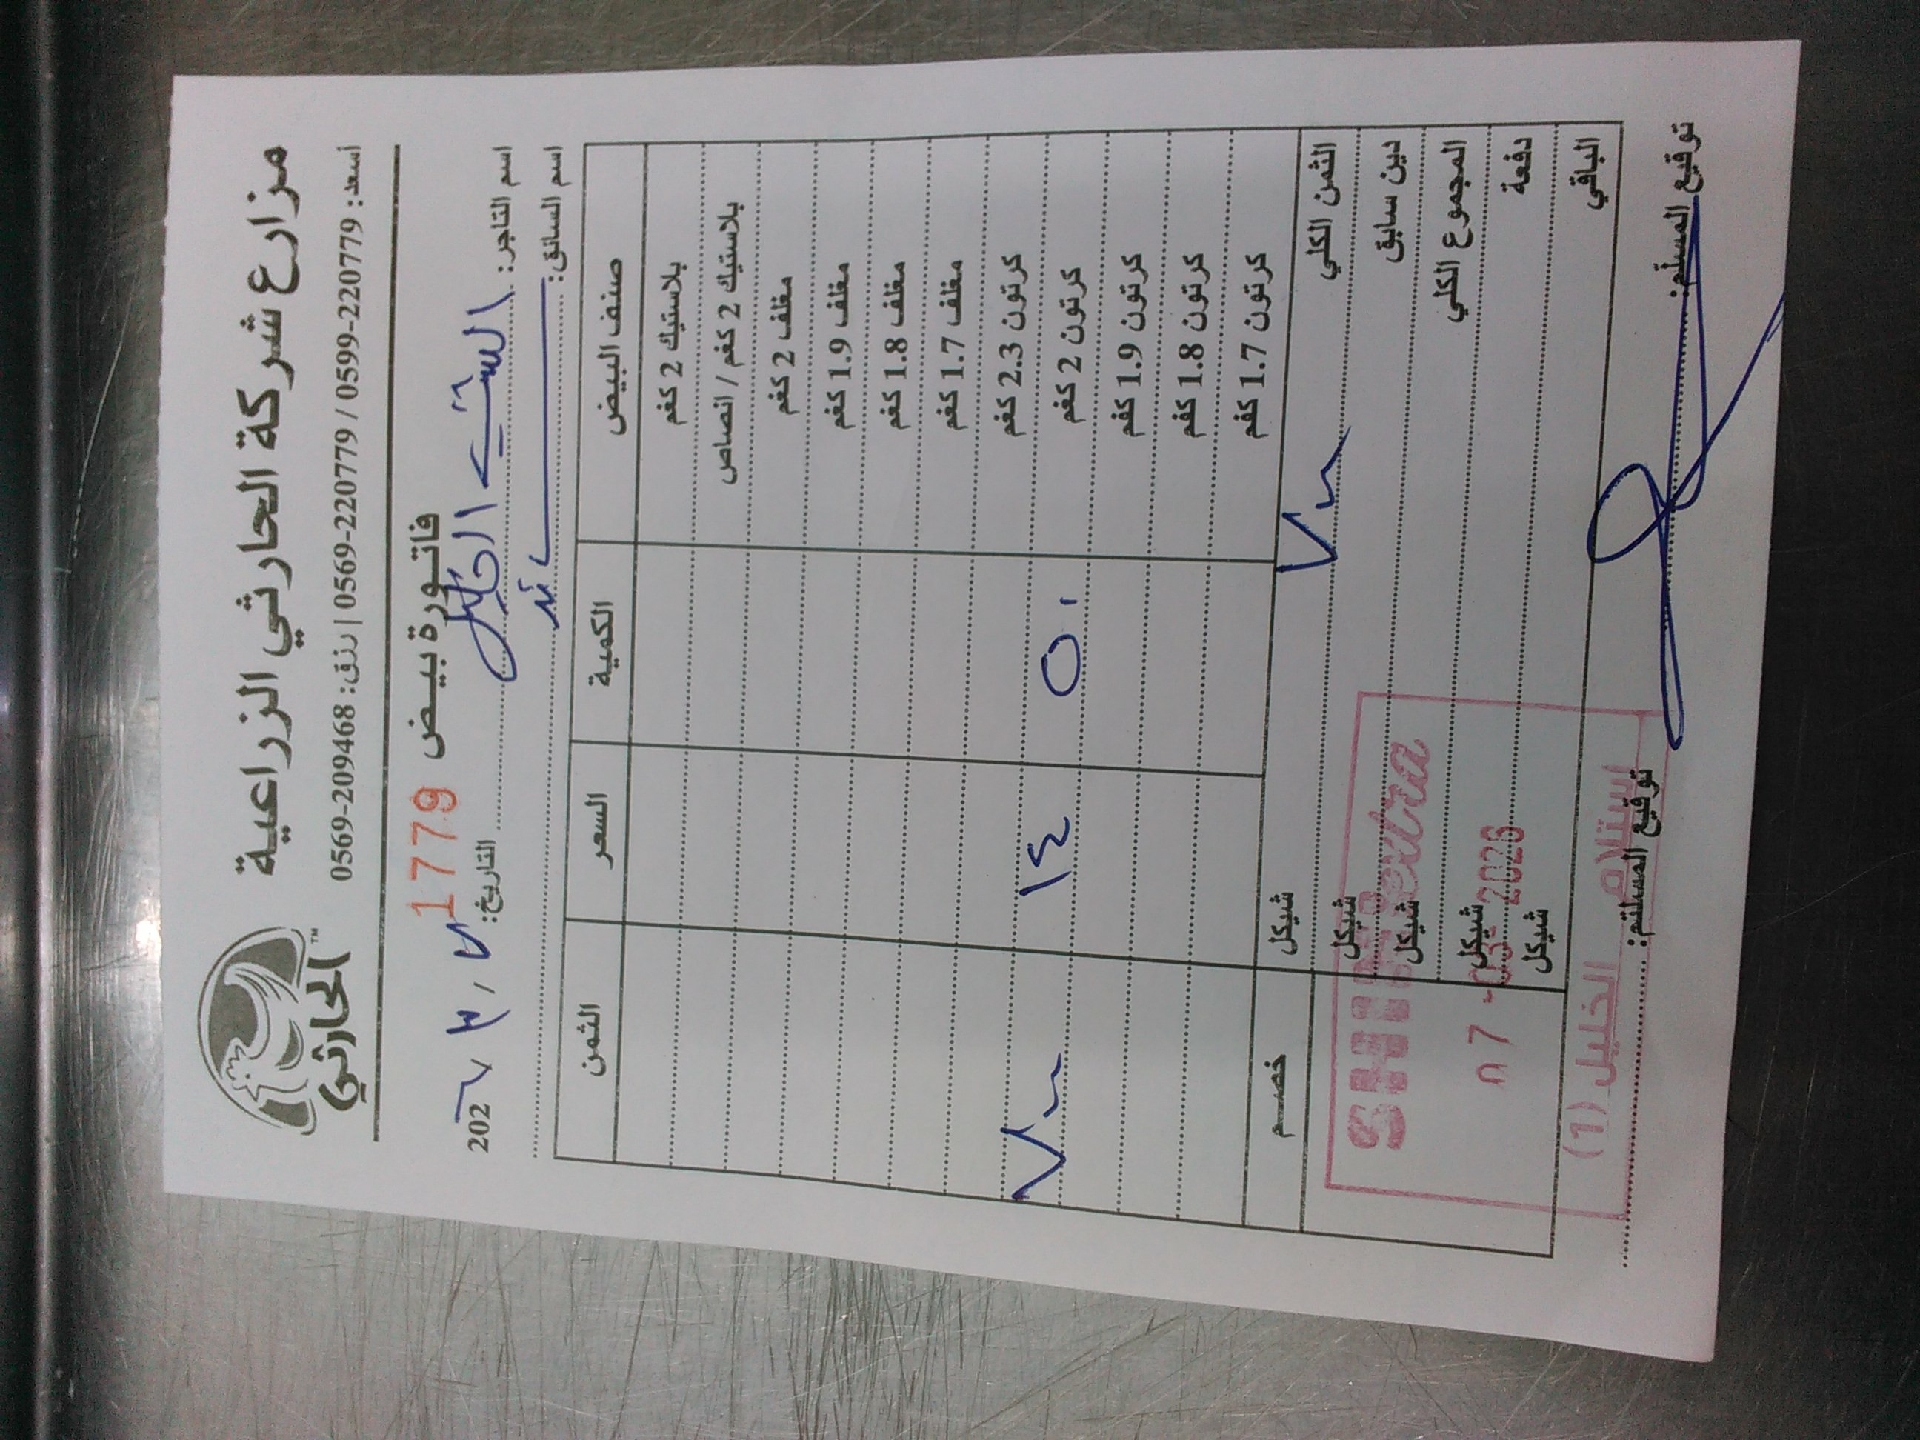 مزارع شركة الحارثي الزراعية
الحارثي™
أسعد: 0599-220779 / 0569-220779 | رزق: 0569-209468
فاتورة بيض 1779
اسم التاجر: الخليل التاريخ: ٧ / ٣ / 202٦
اسم السائق:
صنف البيض الكمية السعر الثمن
بلاستيك 2 كغم
بلاستيك 2 كغم / انصاص
مغلف 2 كغم
مغلف 1.9 كغم
مغلف 1.8 كغم
مغلف 1.7 كغم
كرتون 2.3 كغم
كرتون 2 كغم ٥٠ ١٤ ٧٠٠
كرتون 1.9 كغم
كرتون 1.8 كغم
كرتون 1.7 كغم
الثمن الكلي ٧٠٠ شيكل خصم
دين سابق شيكل
المجموع الكلي شيكل
دفعة شيكل
الباقي شيكل
توقيع المسلّم: توقيع المستلم:
SHINI extra
07 -03- 2026
استلام الخليل (1)